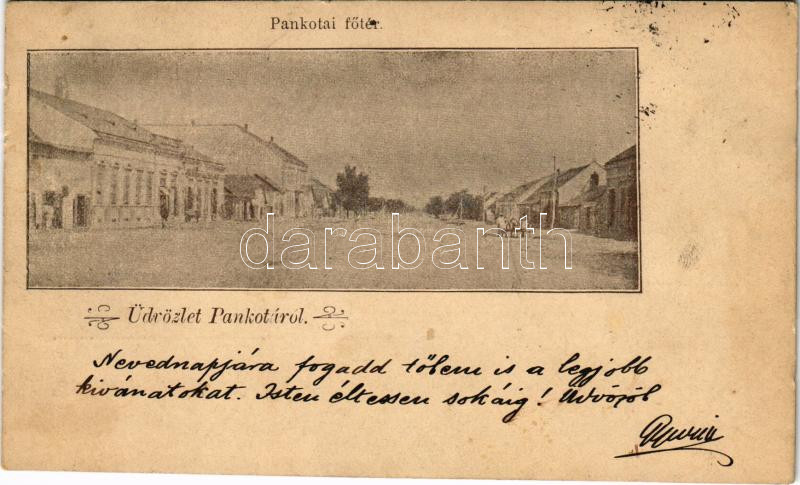 Pankotai főtér.
darabanth
Üdvözlet Pankotáról.
Nevednapjára fogadd tőlem is a legjobb
kivánatokat. Isten éltessen sokáig! Üdvözöl